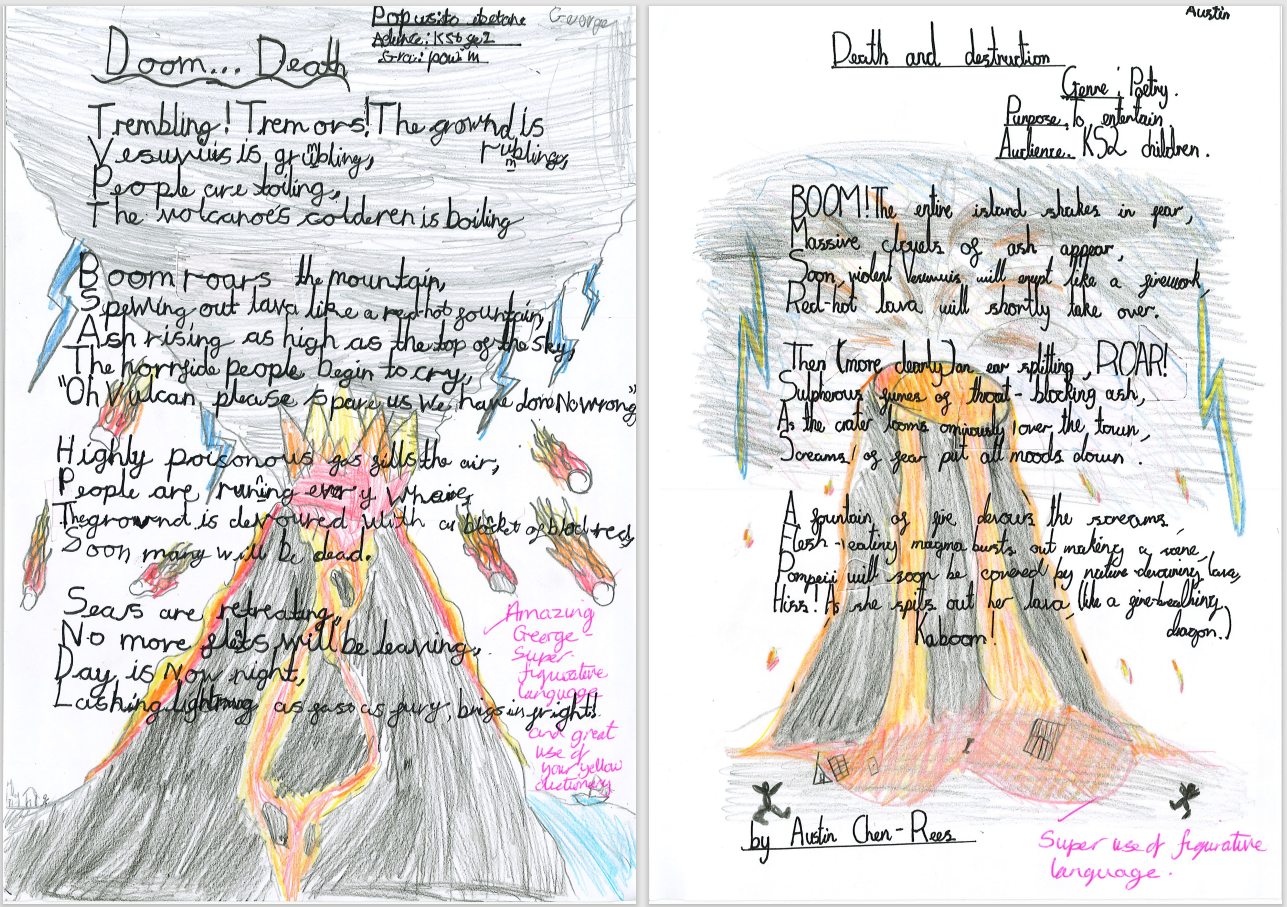 George
Propusito ebetane
Adence: KStge2
Gra: powim
Doom... Death
Trembling! Tremors! The grownd is
rumblings,
Vesuvius is grumbling,
People are toiling,
The volcanoe's colderen is boiling
Boom roars the mountain,
Spewing out lava like a red-hot fountain,
Ash rising as high as the top of the sky,
The horrfide people begin to cry,
"Oh Vulcan please spare us we have done No wrong"
Highly poisonous gas fills the air,
People are runing every whaire,
The grownd is devoured with a blacket of blood red,
Soon many will be dead.
Seas are retreating,
No more fleets will be leaving,
Day is Now night,
Lashing lightning as fast as fury, brigs in fright!
Amazing
George -
Super
figurative
language
and great
use of
your yellow
dictionary
Austin
Death and destruction
Genre: Poetry.
Purpose. To entertain
Audience. KS2 children.
BOOM! The entire island shakes in fear,
Massive clouds of ash appear,
Soon, violent Vesuvuis will erupt like a firework,
Red-hot lava will shortly take over.
Then (more clearly) an ear splitting, ROAR!
Sulpherous fumes of throat-blocking ash,
As the crater looms ominously over the town,
Screams of fear put all moods down.
A fountain of fire devours the screams
Flesh-eating magma busts out making a
Pompeii will soon be covered by native devouring lava,
Hiss! As she spits out her lava, (like a fire-breathing
dragon.)
Kaboom!
by Austin Chen-Rees
Super use of figurative
language.